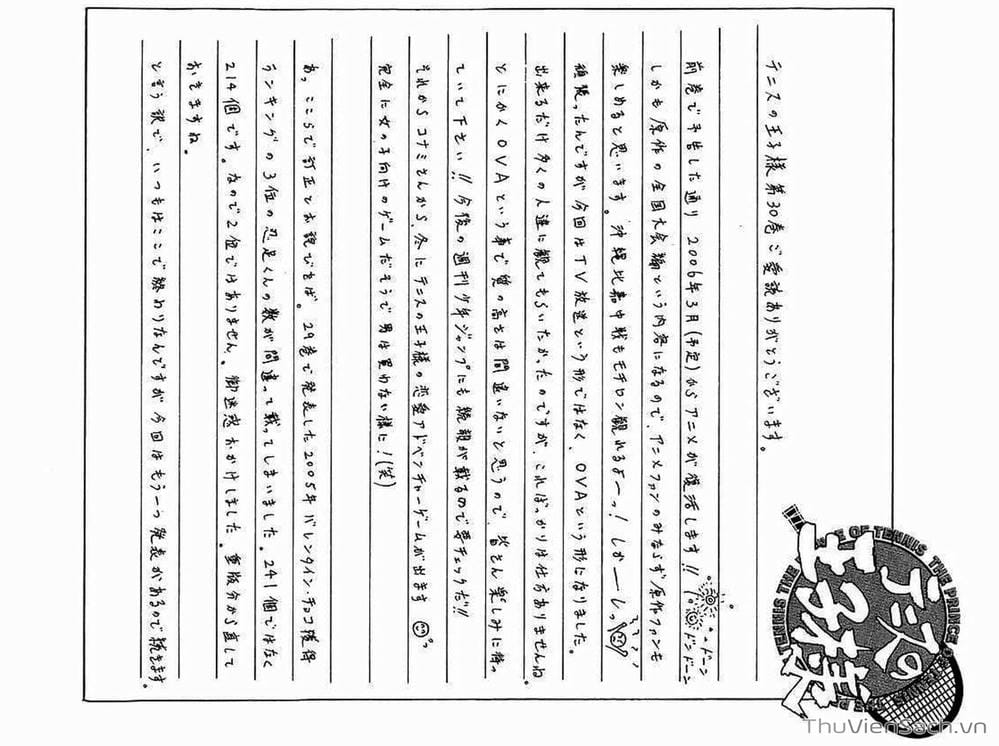 テニスの王子様第30巻ご愛読ありがとうございます。
前巻で予告した通り 2006年3月(予定)からアニメが復活します!! ドーン ドンドーン
しかも原作の全国大会編という内容になるので、アニメファンのみならず原作ファンも
楽しめると思います。沖縄比嘉中戦もモチロン観れるよーっ! しかーしっ
頑張ったんですが今回はTV放送という形ではなく、OVAという形になりました。
出来るだけ多くの人達に観てもらいたかったのですが、こればっかりは仕方ありませんね。
とにかくOVAという事で質の高さは間違いないと思うので、皆さん楽しみに待っ
ていて下さい!! 今後の週刊少年ジャンプにも続報が載るので要チェックだ!!
それからコナミさんから、冬にテニスの王子様の恋愛アドベンチャーゲームが出ますっ
完全に女の子向けのゲームだそうで男は買わない様に!(笑)
あっ、ここらで訂正とお詫びをば。29巻で発表した2005年バレンタイン・チョコ獲得
ランキングの3位の忍足くんの数が間違って載ってしまいました。241個ではなく
214個です。なので2位ではありません。御迷惑おかけしました。重版分から直して
おきますね。
と言う訳で、いつもはここで終わりなんですが今回はもう一つ発表があるので続きます。
テニスの
王子様
THE PRINCE OF TENNIS THE PRINCE
ThuVienSach.vn